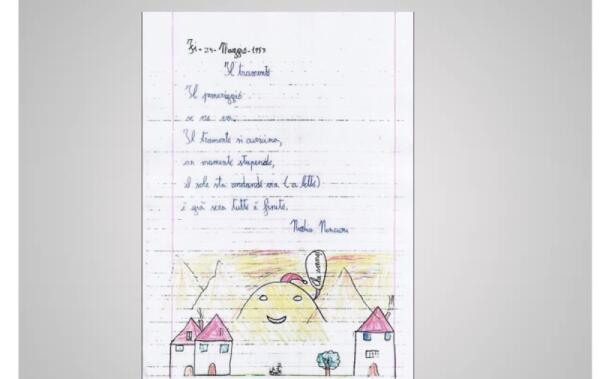 Il tramonto
Il pomeriggio
se ne va.
Il tramonto si avvicina,
un momento stupendo,
il sole sta andando via (a letto)
è già sera tutto è finito.
Che sonno